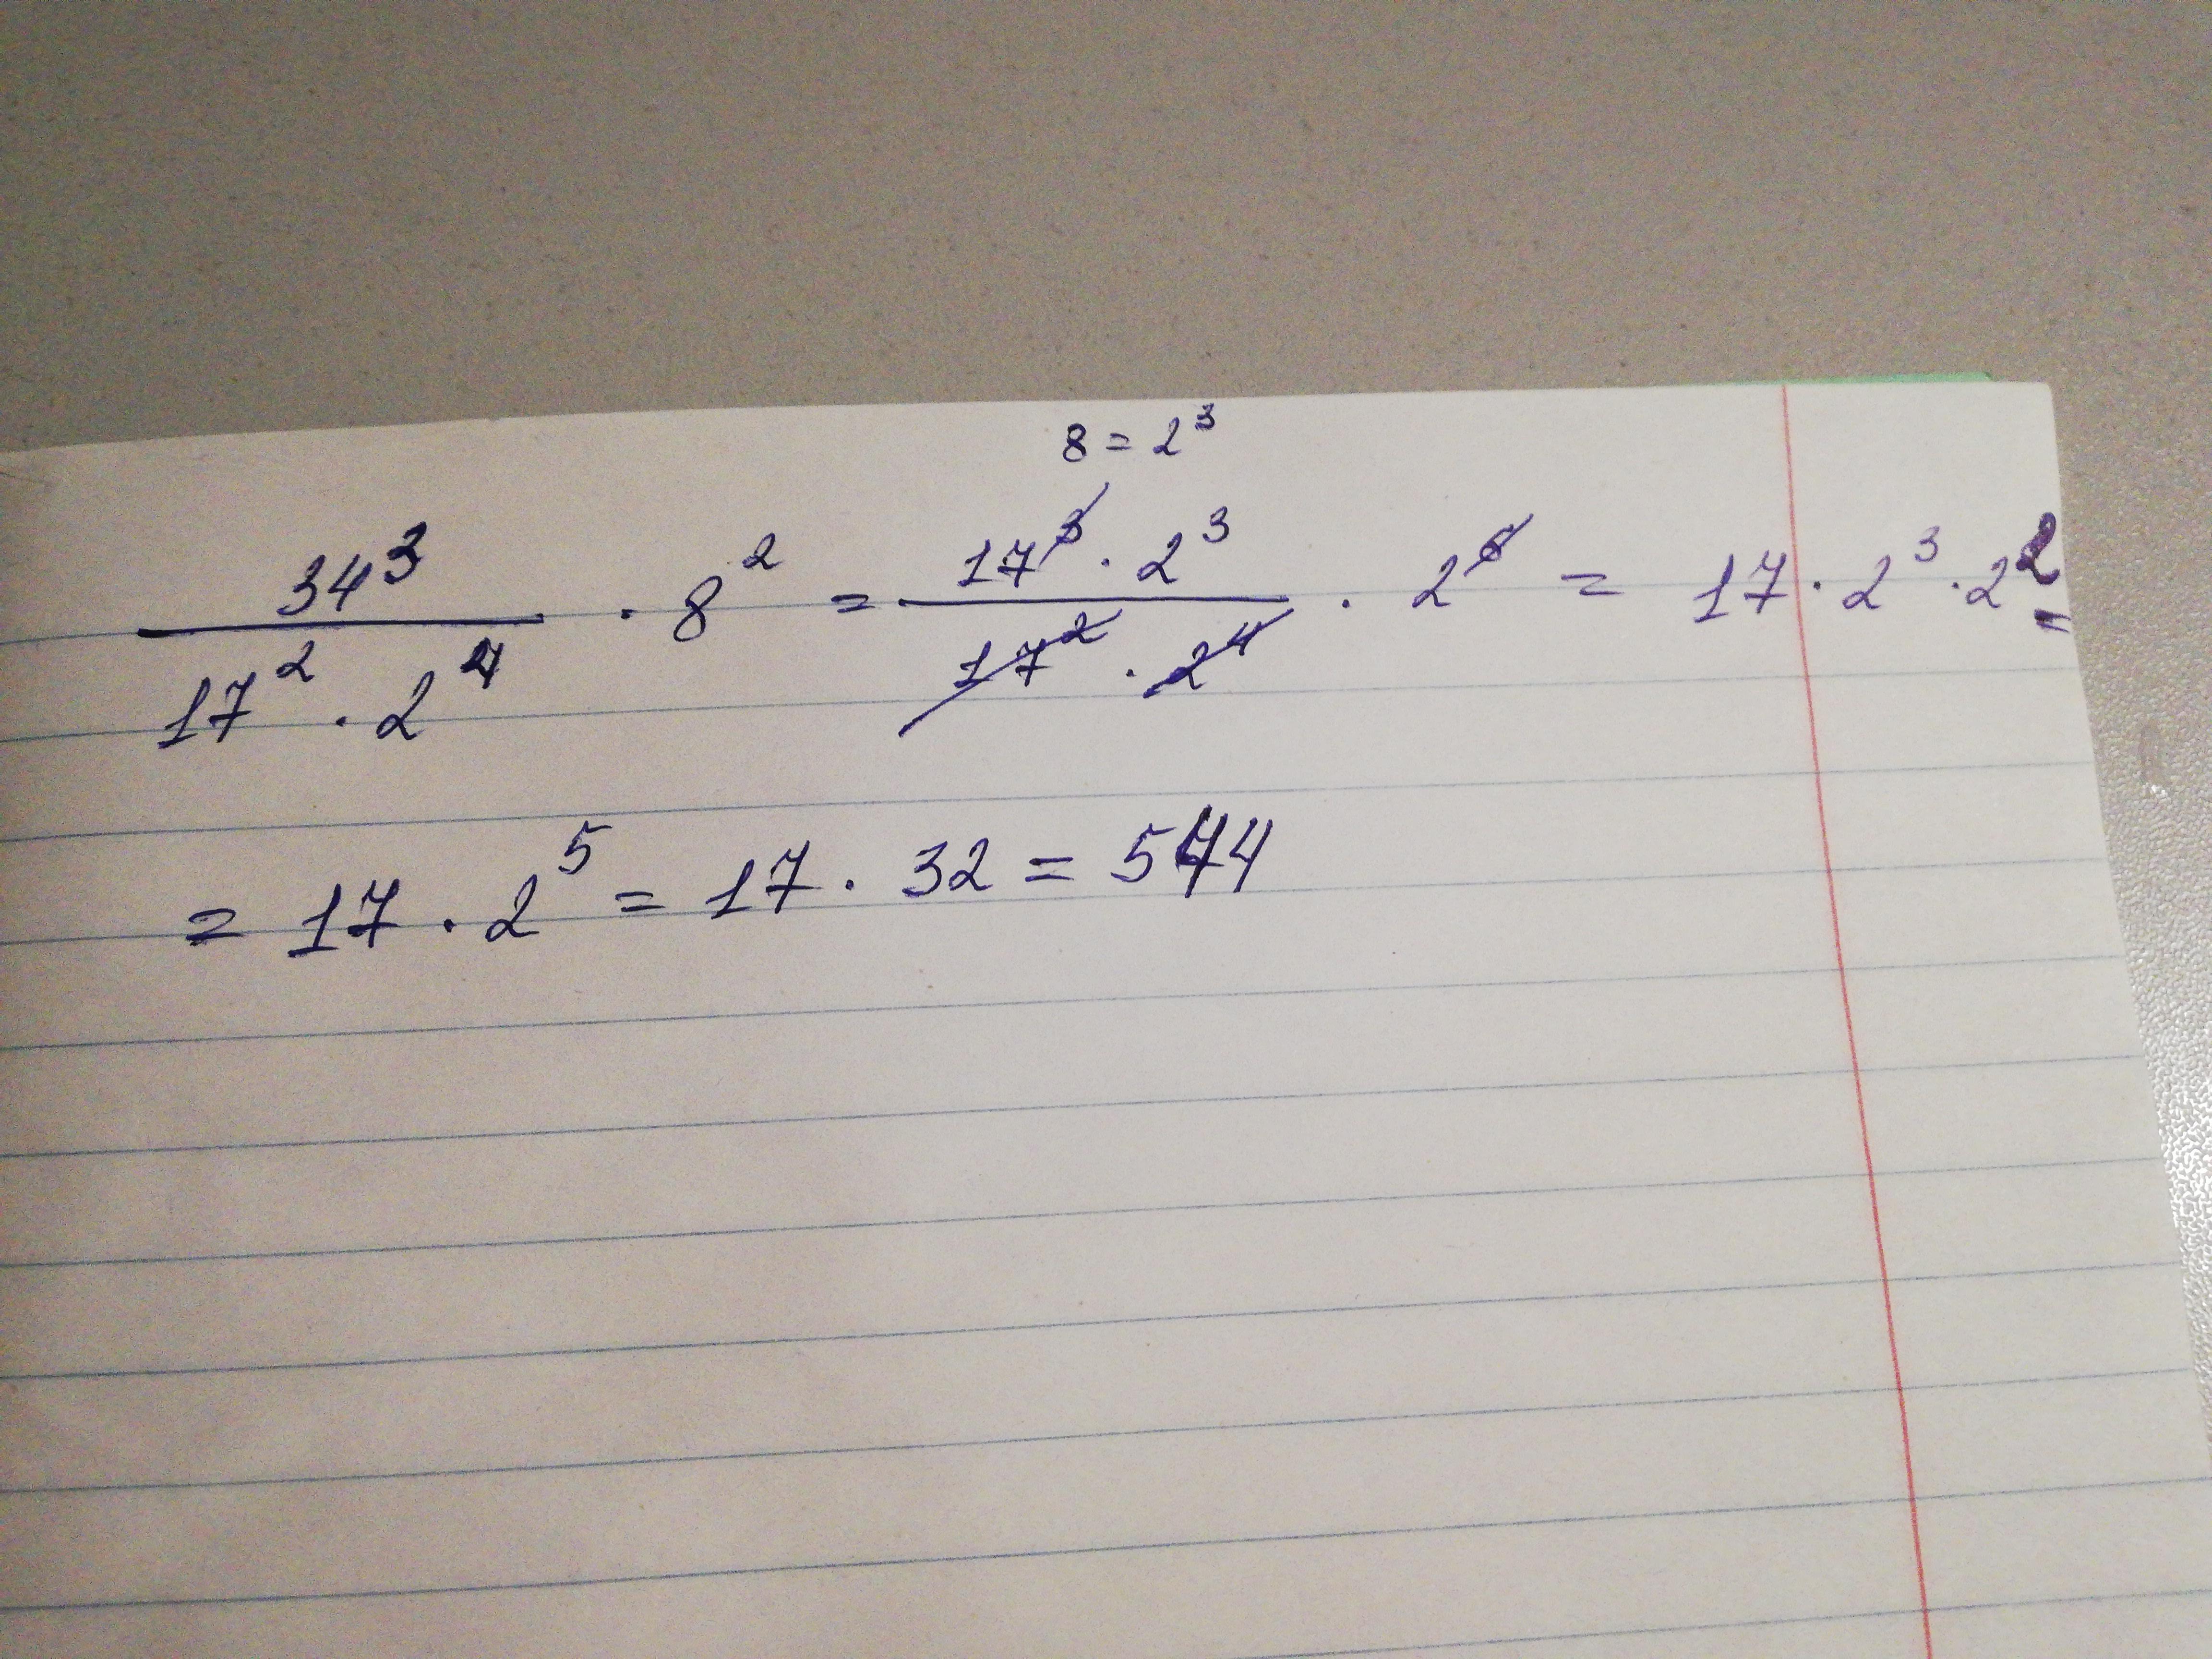 8 = 2³
34³ / (17² · 2⁴) · 8² = (17³ · 2³) / (17² · 2⁴) · 2⁶ = 17 · 2³ · 2² =
= 17 · 2⁵ = 17 · 32 = 544